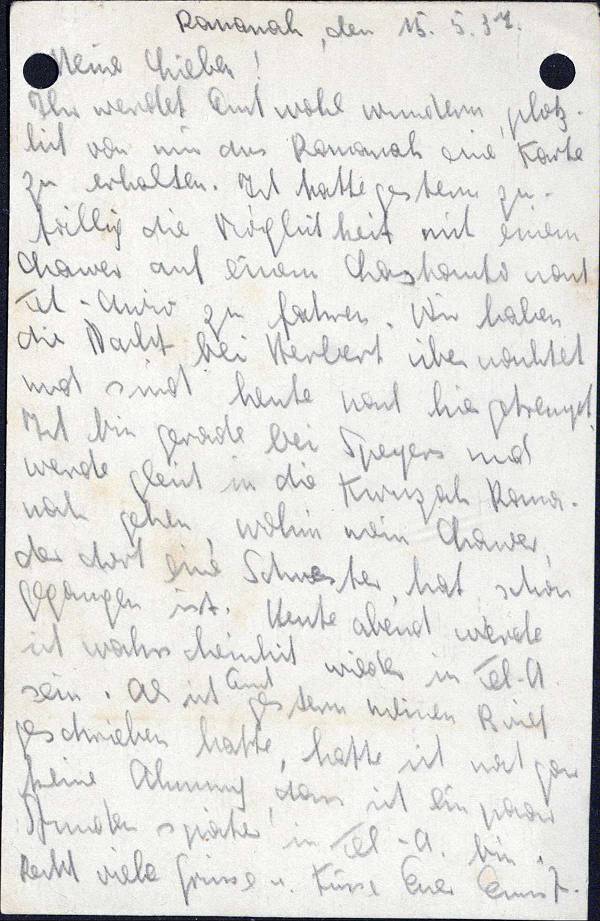 Raananah, den 15. 5. 37.
Meine Lieben!
Ihr werdet Euch wohl wundern, plötz-
lich von mir aus Raananah eine Karte
zu erhalten. Ich hatte gestern zu-
fällig die Möglichkeit mit einem
Chawer auf einem nach
Tel-Awiw zu fahren. Wir haben
die Nacht bei Herbert übernachtet
und sind heute nach hier getrempt.
Ich bin gerade bei Speyers und
werde gleich in die Kwuzah Raana-
nah gehen, wohin mein Chawer,
der dort eine Schwester hat, schon
gegangen ist. Heute abend werde
ich wahrscheinlich wieder in Tel-A.
sein. Als ich Euch gestern meinen Brief
geschrieben hatte, hatte ich noch gar
keine Ahnung, dass ich ein paar
Stunden später in Tel-A. bin.
Recht viele Grüsse u. Küsse Euer Ernst.